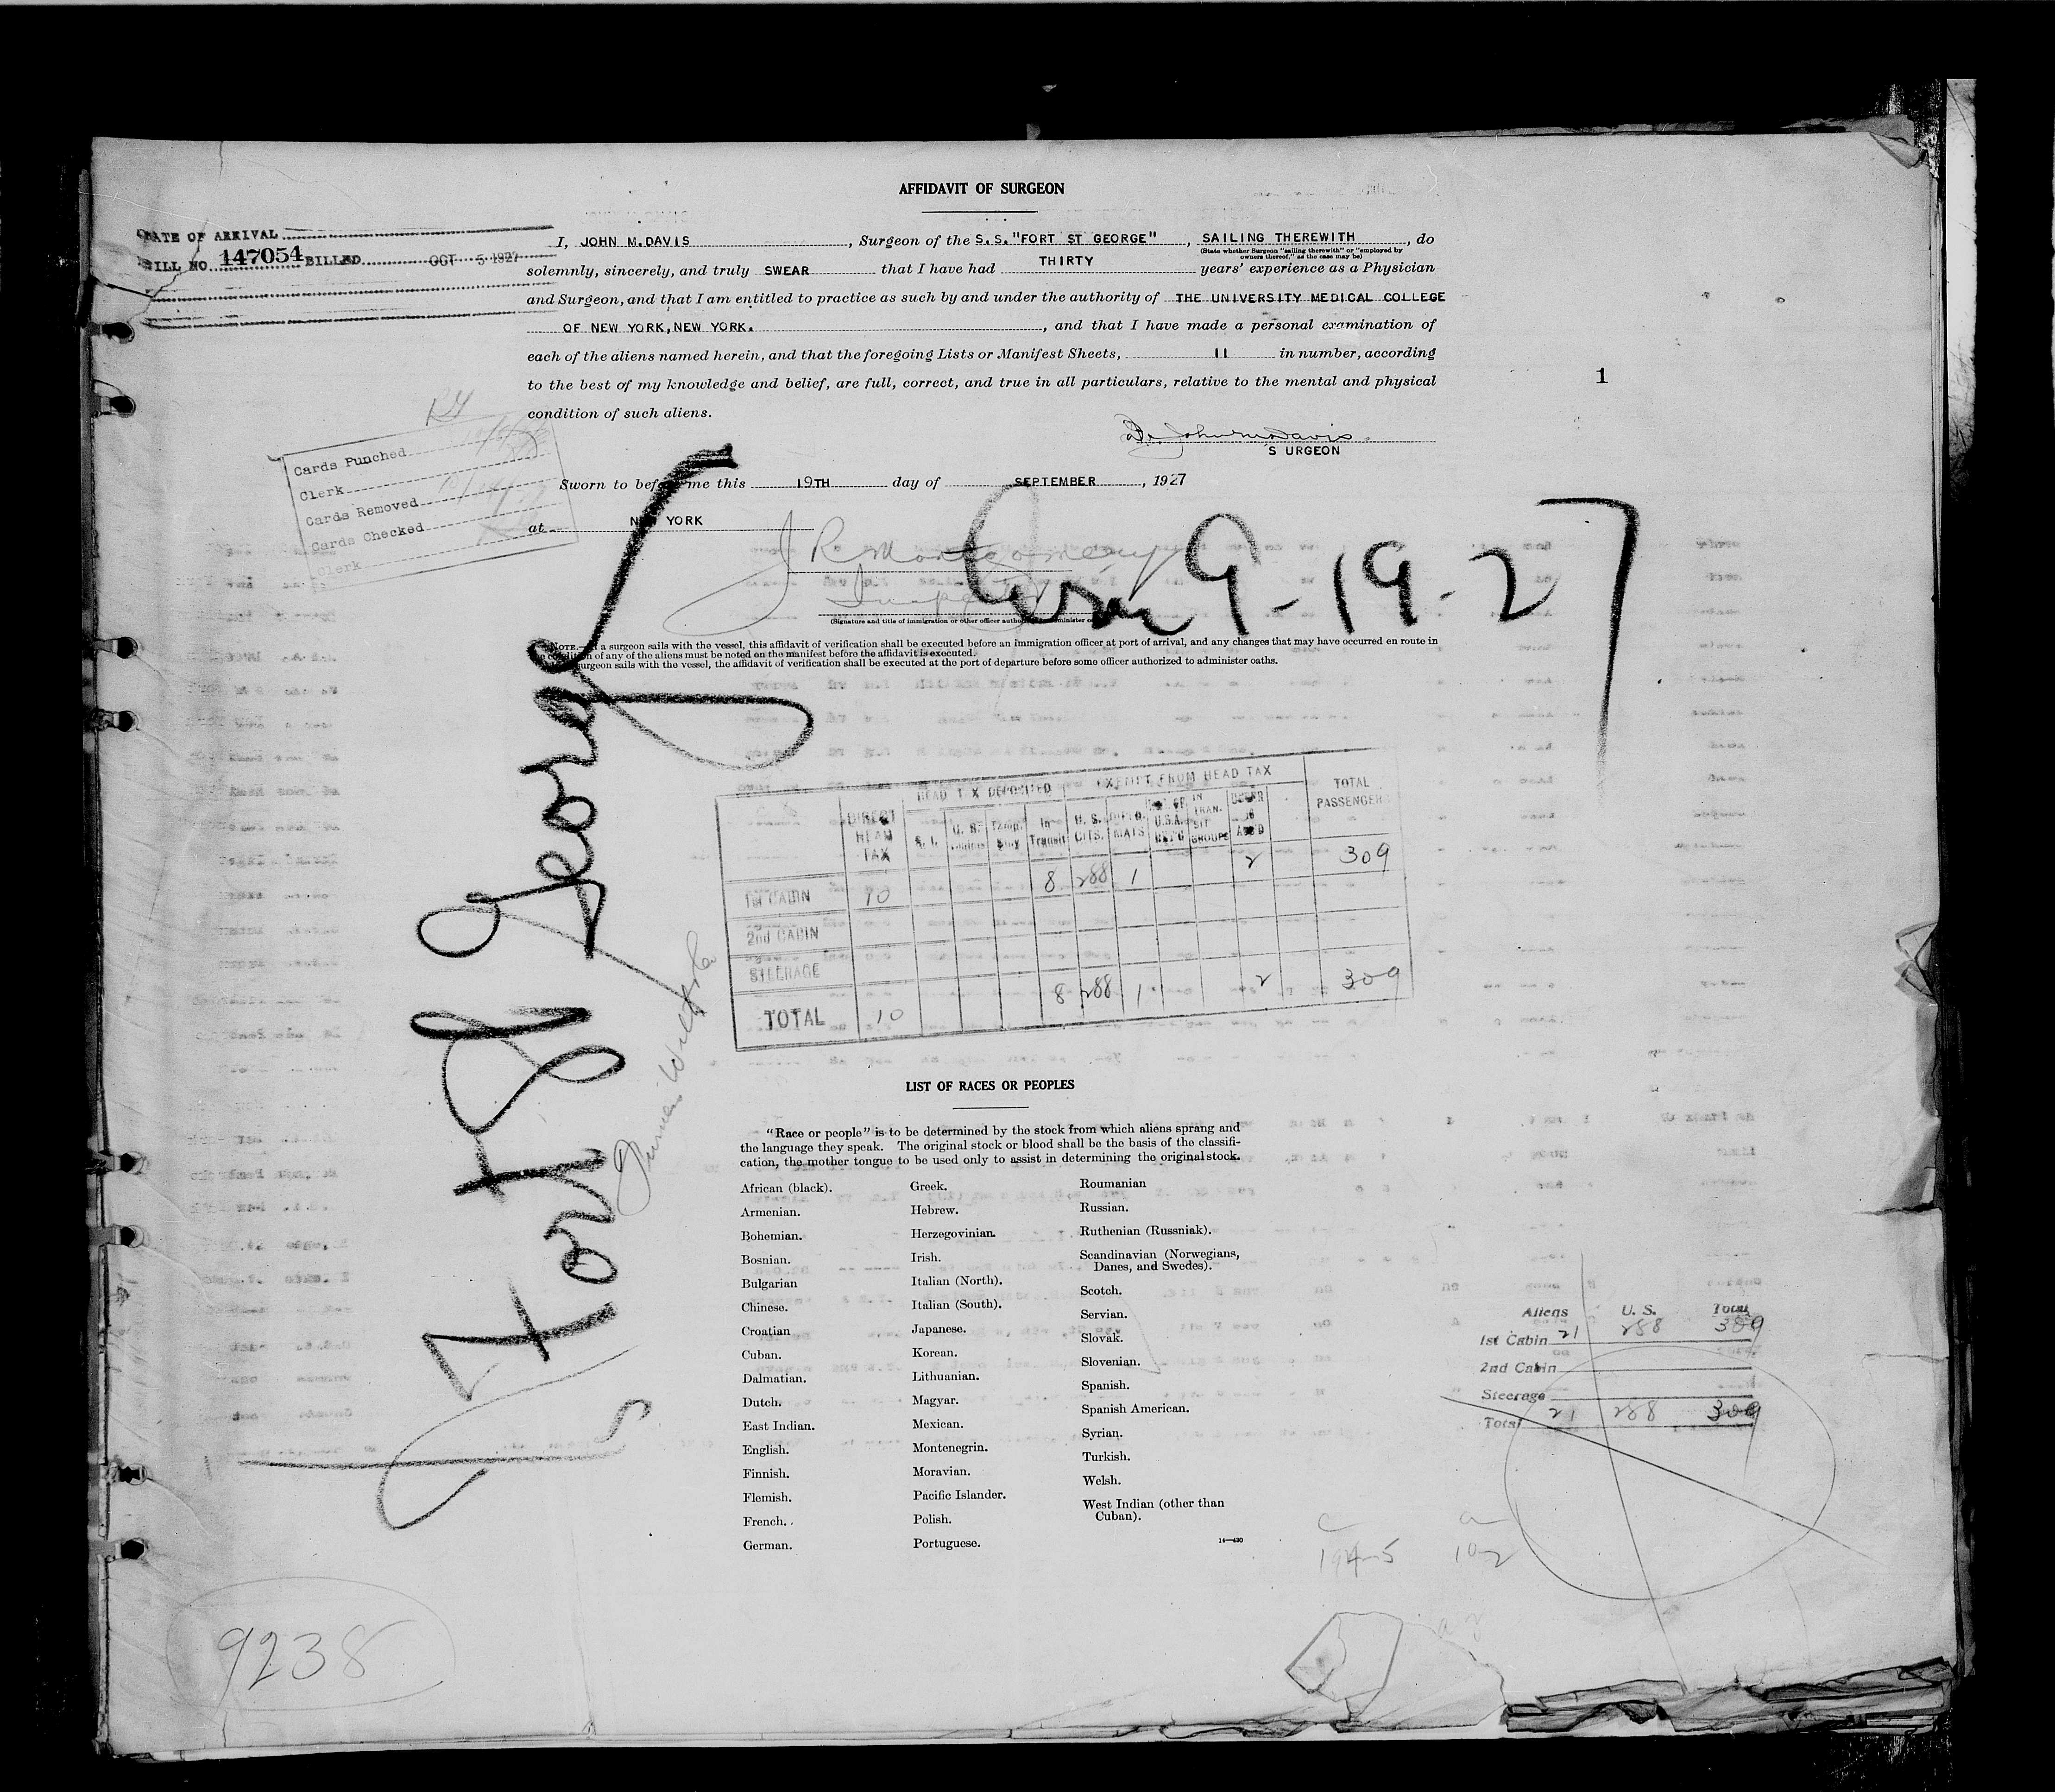 AFFIDAVIT OF SURGEON
DATE OF ARRIVAL
BILL NO 147054 BILLED OCT 5 1927
I, JOHN M. DAVIS, Surgeon of the S.S."FORT ST GEORGE", SAILING THEREWITH, do
(State whether Surgeon "sailing therewith" or "employed by owners thereof," as the case may be)
solemnly, sincerely, and truly SWEAR that I have had THIRTY years' experience as a Physician
and Surgeon, and that I am entitled to practice as such by and under the authority of THE UNIVERSITY MEDICAL COLLEGE
OF NEW YORK, NEW YORK., and that I have made a personal examination of
each of the aliens named herein, and that the foregoing Lists or Manifest Sheets, 11 in number, according
to the best of my knowledge and belief, are full, correct, and true in all particulars, relative to the mental and physical
condition of such aliens.
1
Dr. John M Davis
S URGEON
Cards Punched
Clerk
Cards Removed
Cards Checked
Clerk
Sworn to before me this 19TH day of SEPTEMBER, 1927
at NEW YORK
J R Montgomery
Inspector
9-19-27
(Signature and title of immigration or other officer authorized to administer
NOTE.—If a surgeon sails with the vessel, this affidavit of verification shall be executed before an immigration officer at port of arrival, and any changes that may have occurred en route in
condition of any of the aliens must be noted on the manifest before the affidavit is executed.
surgeon sails with the vessel, the affidavit of verification shall be executed at the port of departure before some officer authorized to administer oaths.
Fort St George
DIRECT HEAD TAX
HEAD TAX DEPOSITED
EXEMPT FROM HEAD TAX
TOTAL PASSENGERS
In Transit
U. S. CITS.
1st CABIN 10 8 288 1 2 309
2nd CABIN
STEERAGE
TOTAL 10 8 288 1 2 309
LIST OF RACES OR PEOPLES
"Race or people" is to be determined by the stock from which aliens sprang and
the language they speak. The original stock or blood shall be the basis of the classifi-
cation, the mother tongue to be used only to assist in determining the original stock.
African (black).
Armenian.
Bohemian.
Bosnian.
Bulgarian
Chinese.
Croatian
Cuban.
Dalmatian.
Dutch.
East Indian.
English.
Finnish.
Flemish.
French.
German.
Greek.
Hebrew.
Herzegovinian.
Irish.
Italian (North).
Italian (South).
Japanese.
Korean.
Lithuanian.
Magyar.
Mexican.
Montenegrin.
Moravian.
Pacific Islander.
Polish.
Portuguese.
Roumanian
Russian.
Ruthenian (Russniak).
Scandinavian (Norwegians,
Danes, and Swedes).
Scotch.
Servian.
Slovak.
Slovenian.
Spanish.
Spanish American.
Syrian.
Turkish.
Welsh.
West Indian (other than
Cuban).
14—430
Aliens U. S. Total
1st Cabin 21 288 309
2nd Cabin
Steerage
Total 21 288 309
9238